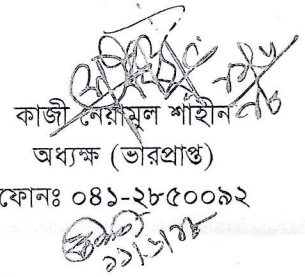 কাজী নেয়ামুল শাহীন
অধ্যক্ষ (ভারপ্রাপ্ত)
ফোনঃ ০৪১-২৮৫০০৯২